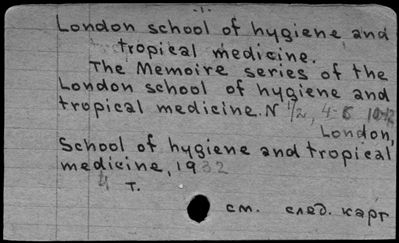 London school of hygiene and
tropical medicine.
The Memoire series of the
London school of hygiene and
tropical medicine. N 1/2, 4-6 10-12
London,
School of hygiene and tropical
medicine, 1932
4 т.
см. след. карт